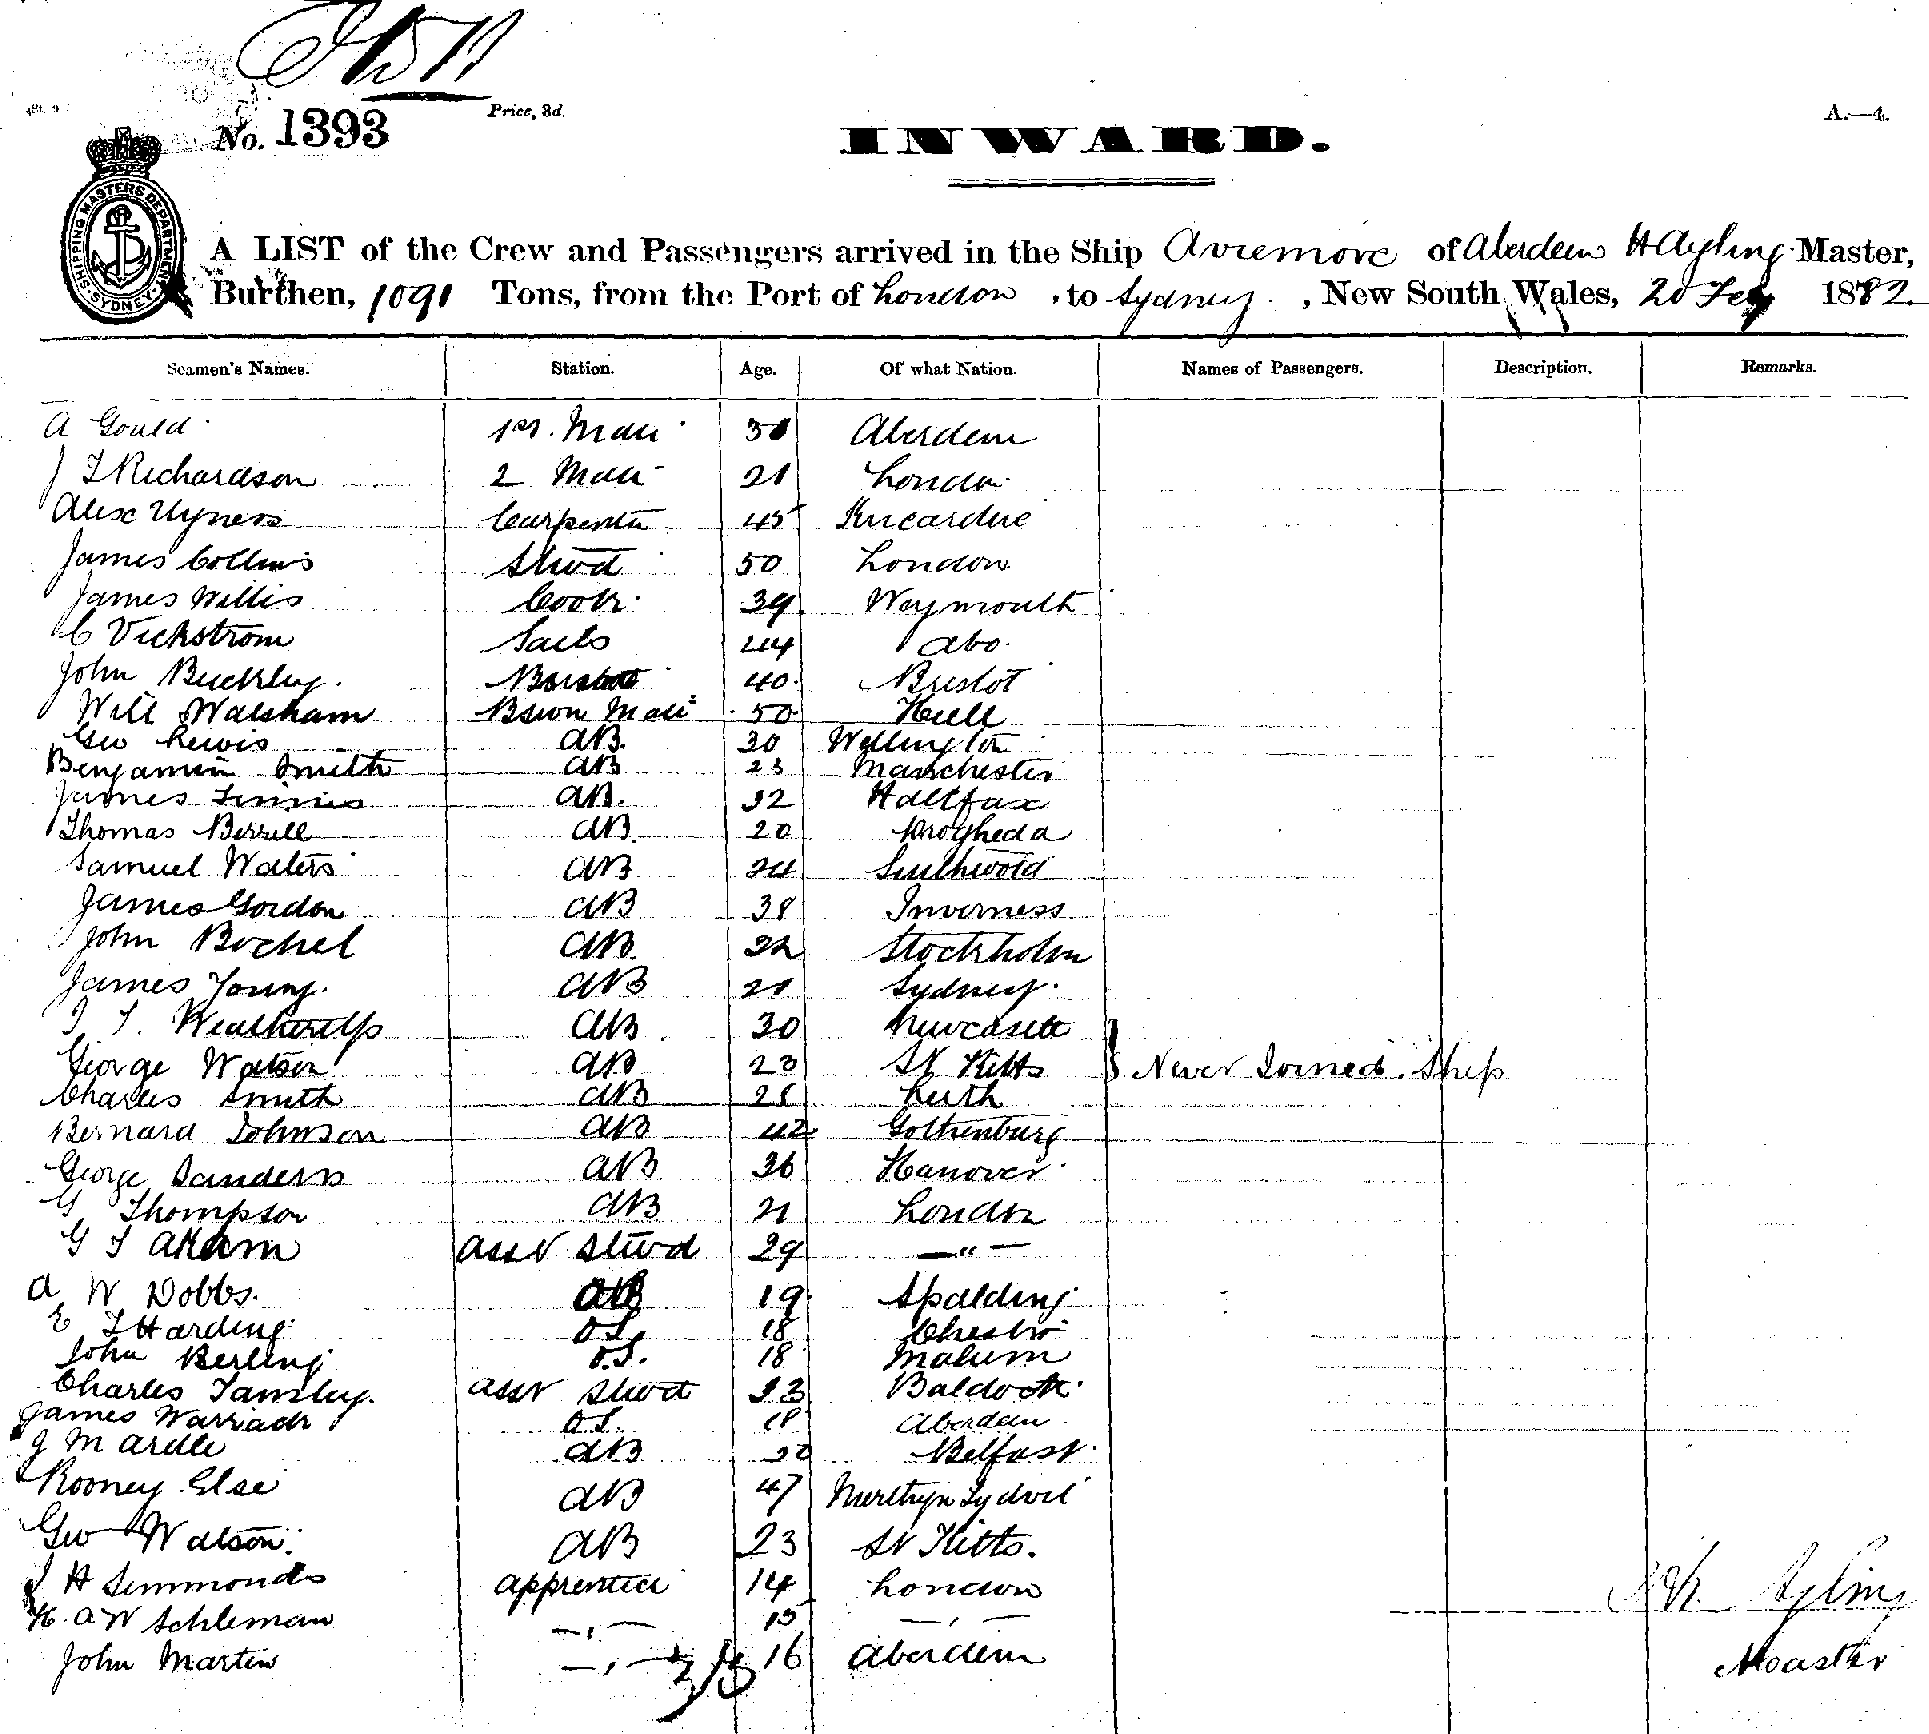 No. 1393
Price, 3d.
INWARD.
A.—4.
SHIPPING MASTERS DEPARTMENT SYDNEY
A LIST of the Crew and Passengers arrived in the Ship Aviemore of Aberdeen H Ayling Master,
Burthen, 1091 Tons, from the Port of London, to Sydney, New South Wales, 20 Feby 1882
Seamen's Names. Station. Age. Of what Nation. Names of Passengers. Description. Remarks.
A Gould 1st. Mate Aberdeen
J F Richardson 2 Mate 21 London
Alex Carpenter 45 Kincardine
James Collins Stwd 50 London
James Willis Cook 39 Weymouth
C Vickstrom Sails 44 Abo
John Buckley 40 Bristol
Will Walsham Bswn Mate 50 Hull
Geo Lewis AB 30 Wellington
Benjamin Smith AB 23 Manchester
James AB 32 Halifax
Thomas Berrill AB 20 Drogheda
Samuel Waters AB 24 Southwold
James Gordon AB 38 Inverness
John Bochel AB 32 Stockholm
James Young AB 21 Sydney
AB 30 Newcastle
George Watson AB 23 St Kitts Never Joined Ship
Charles Smith AB 28 Leith
Bernard Johnson AB 42 Gothenburg
George Sanders AB 36 Hanover
G Thompson AB 21 London
G F Akam Asst Stwd 29 — " —
A W Dobbs 19 Spalding
E F Harding O.S. 18 Chester
John Berling O.S. 18
Charles Tansley Asst Stwd 23 Baldock
James Warrack O.S. 18 Aberdeen
J M AB 20 Belfast
Rooney Else AB 47 Merthyr Tydvil
Geo Watson AB 23 St Kitts.
H Simmonds Apprentice 14 London
H. A W Schleman — " — 15 — " —
John Martin — " — 16 Aberdeen
Ayling
Master